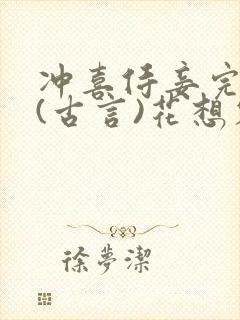 冲喜侍妾完
(古言)花想
徐夢潔